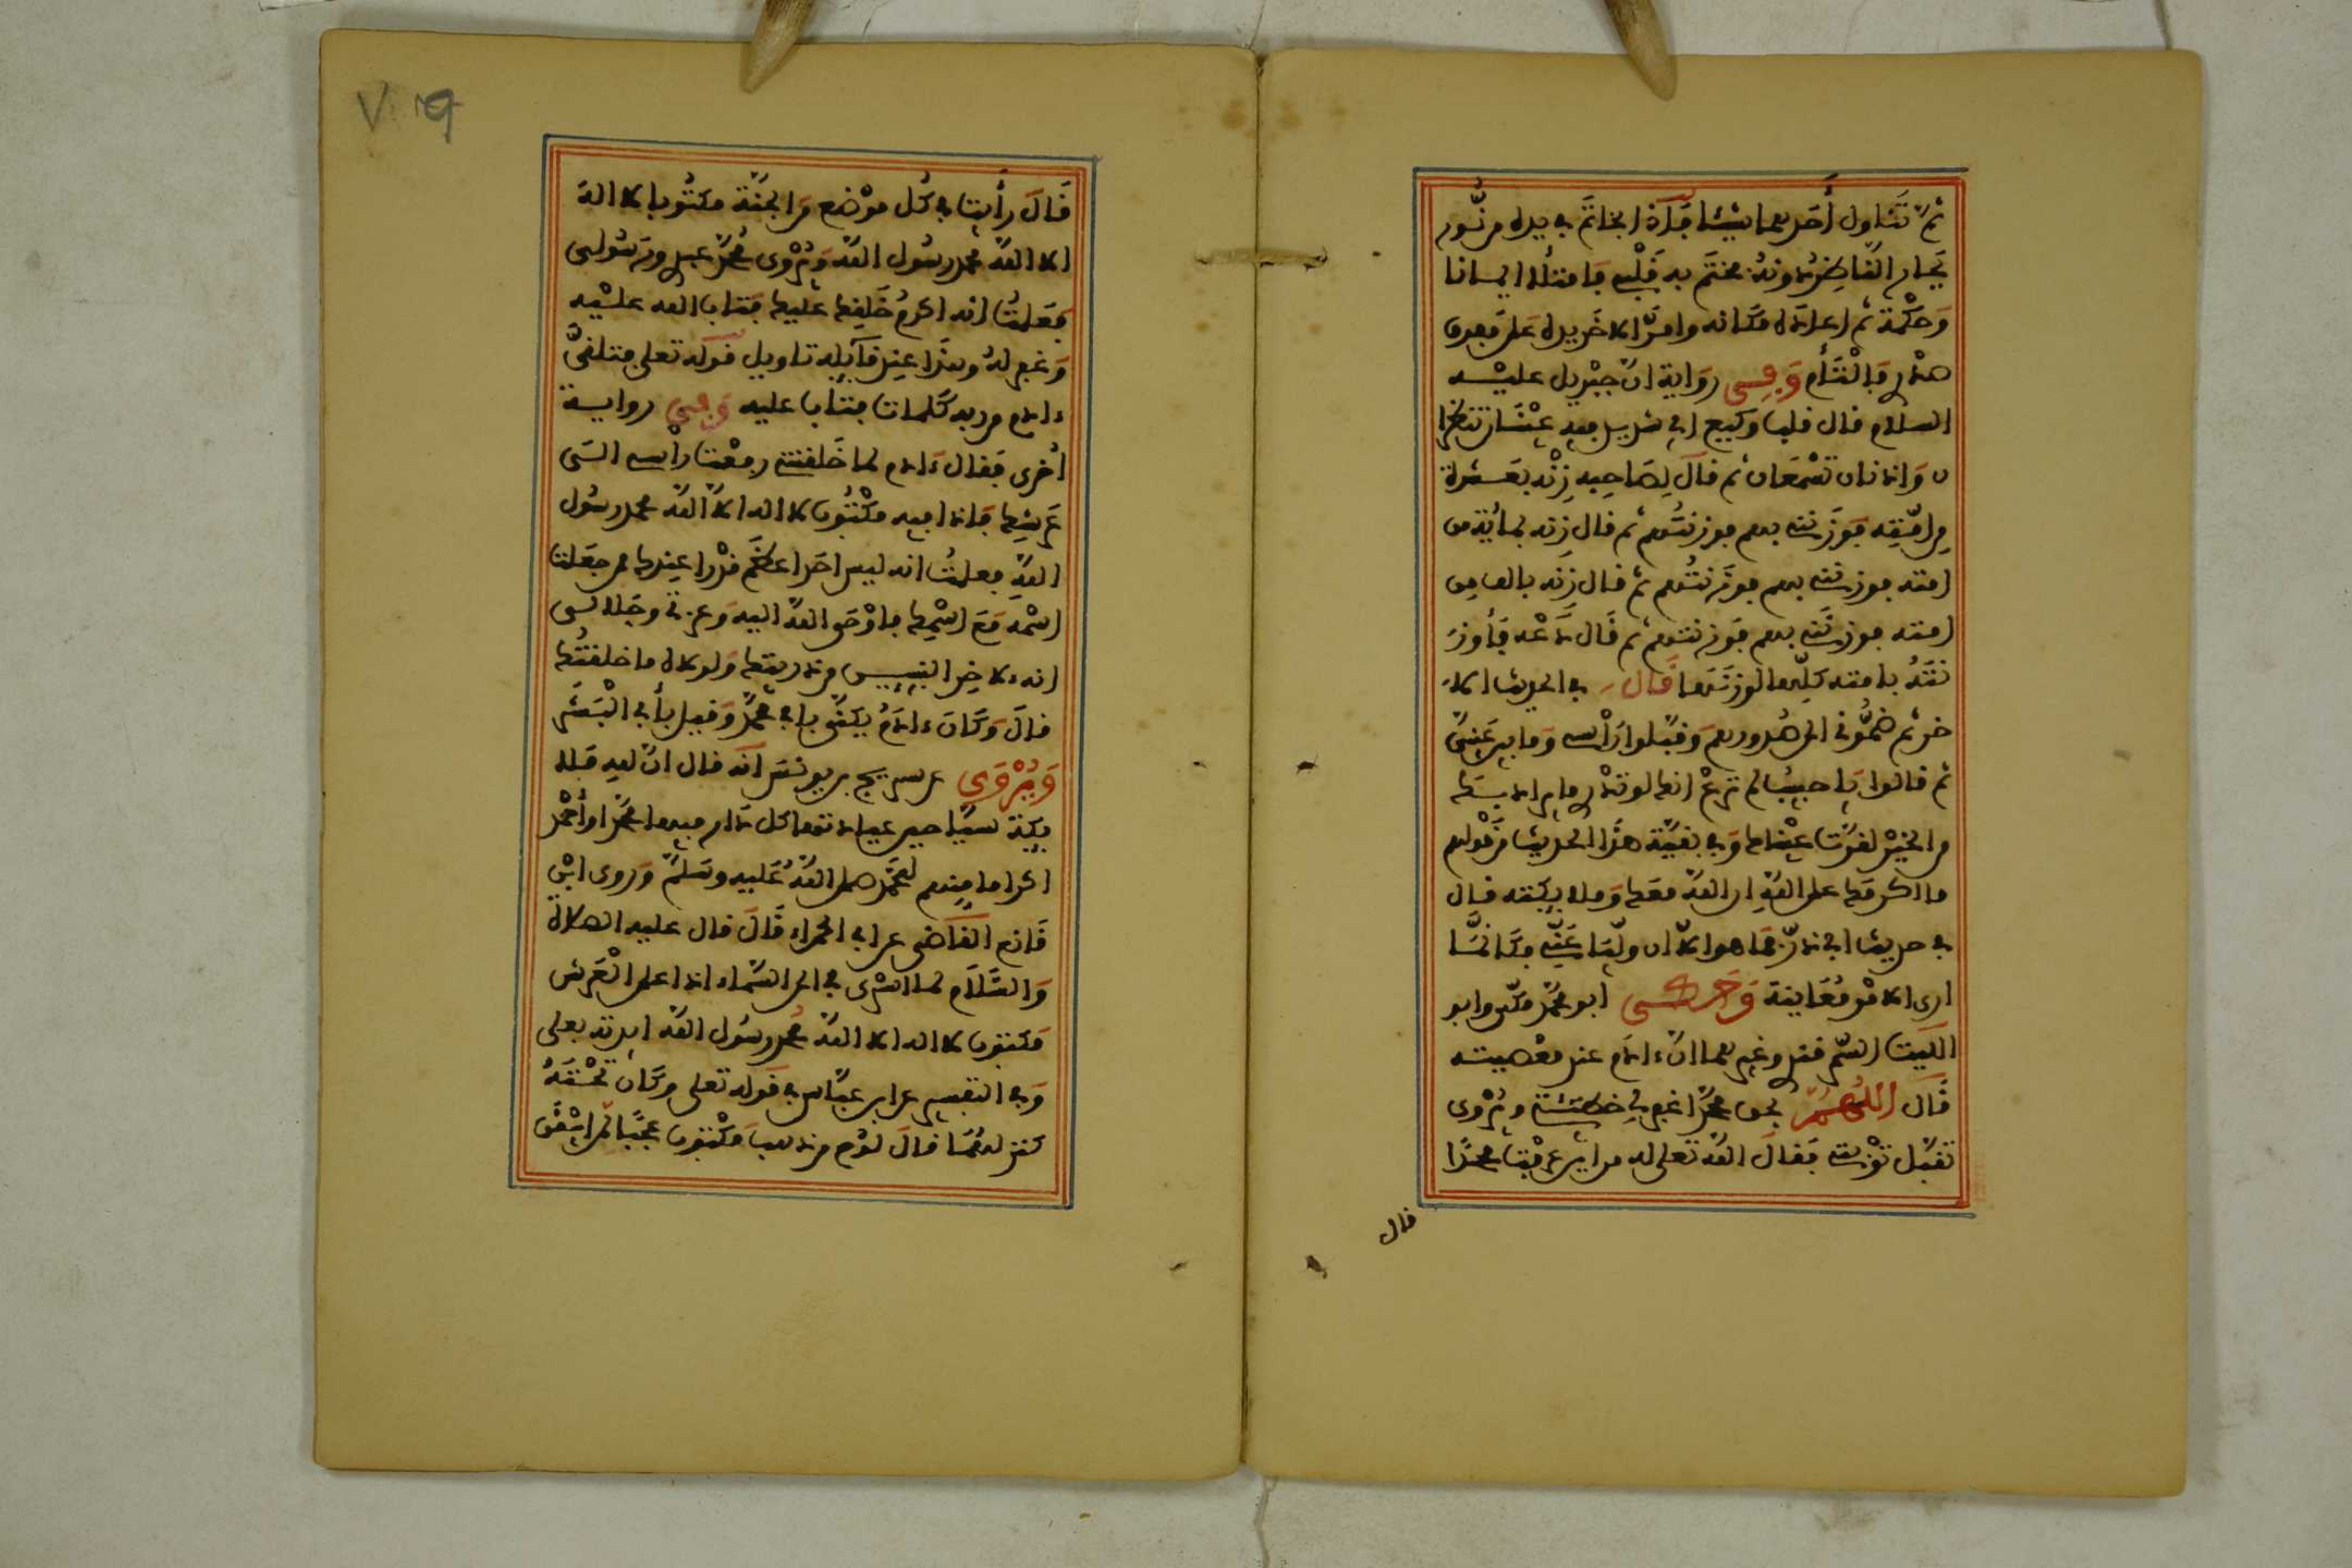 ثم تناول أحدهما شيئا فإذا بخاتم في يده من نور
يحار الناظر دونه فختم به قلبي فامتلأ ايمانا
وحكمة ثم اعاده مكانه وامر الاخر يده على مفرق
صدري فالتأم وفي رواية ان جبريل عليه
السلام قال قلب وكيع اي شديد فيه عينان تبصرا
ن واذنان تسمعان ثم قال لصاحبه زنه بعشرة
من امته فوزنني بهم فوزنتهم ثم قال زنه بمائة من
امته فوزنني بهم فوزنتهم ثم قال زنه بالف من
امته فوزنني بهم فوزنتهم ثم قال دعه فلو وز
نته بامته كلها لوزنها قال في الحديث الا
خر ثم ضموني الى صدورهم وقبلوا رأسي وما بين عيني
ثم قالوا يا حبيب لم ترع انك لو تدري ما يراد بك
من الخير لقرت عيناك وفي بقية هذا الحديث من قولهم
ما اكرمك على الله ان الله معك وملائكته قال
في حديث ابي ذر فما هو الا ان وليا عني فكانما
ارى الامر معاينة وحكى ابو محمد مكي وابو
الليث السمرقندي وغيرهما ان ءادم عند معصيته
قال اللهم بحق محمد اغفر لي خطيئتي ويروى
تقبل توبتي فقال الله تعلى له من اين عرفت محمدا
قال
قال رأيت في كل موضع من الجنة مكتوبا لا اله
الا الله محمد رسول الله ويروى محمد عبدي ورسولي
فعلمت انه اكرم خلقك عليك فتاب الله عليه
وغفر له وهذا عند قائله تاويل قوله تعلى فتلقى
ءادم من ربه كلمات فتاب عليه وفي رواية
اخرى فقال ءادم لما خلقتني رفعت رأسي الى
عرشك فاذا فيه مكتوب لا اله الا الله محمد رسول
الله فعلمت انه ليس احد اعظم قدرا عندك ممن جعلت
اسمه مع اسمك فاوحى الله اليه وعزتي وجلالي
انه ءلاخر النبيين من ذريتك ولولاه ما خلقتك
قال وكان ءادم يكنى بابي محمد وقيل بأبي البشر
ويروى عن سريج بن يونس انه قال ان لله ملا
ئكة سياحين عيادتها كل دار فيها محمد او أحمد
اكراما منهم لمحمد صلى الله عليه وسلم وروى ابن
قانع القاضي عن ابي الحمراء قال قال عليه الصلاة
والسلام لما اسري بي الى السماء اذا على العرش
مكتوب لا اله الا الله محمد رسول الله ايدته بعلي
وفي التفسير عن ابن عباس في قوله تعلى وكان تحته
كنز لهما قال لوح من ذهب مكتوب عجبا لمن ايقن